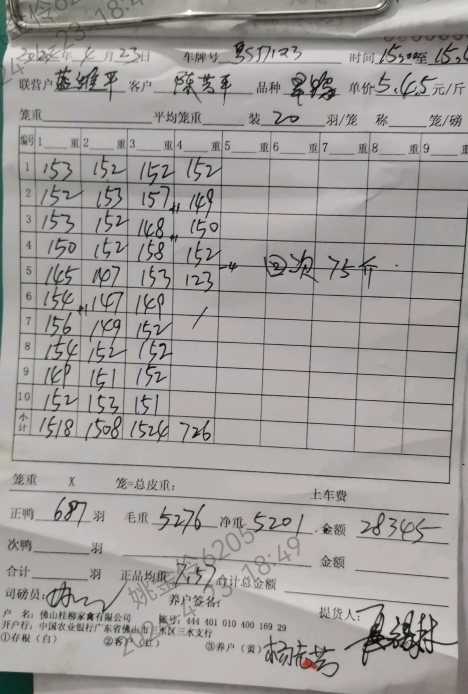 4月23日 车牌号 时间15:20至15:
联营户 客户 陈芳平 品种 单价5.45元/斤
笼重 平均笼重 装20羽/笼 称 笼/磅
编号 1 重 2 重 3 重 4 重 5 重 6 重 7 重 8 重 9 重
1 153 152 152 152
2 152 153 157 149
3 153 152 148 150
4 150 152 158 152
5 145 147 153 123 回次 75斤
6 154 147 149
7 156 149 152
8 154 152 152
9 149 151 152
10 152 153 151
小计 1518 1508 1524 726
笼重 X 笼=总皮重: 上车费
正鸭 687 羽 毛重 5276 净重 5201 金额 28345
次鸭 羽 金额
合计 羽 正品均重 7.57 合计总金额
司磅员: 养户签名: 提货人:
户 名: 佛山桂柳家禽有限公司 账号: 444 401 010 400 169 29
开户行: 中国农业银行广东省佛山市三水区三水支行
①存根(白) ②客户(红) ③养户(黄)
姚金玲6205
18:49